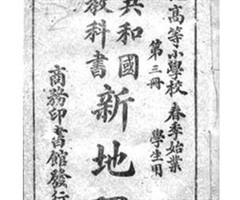 高等小學校 春季始業
第三冊 學生用
共和國
教科書
新地
商務印書館發行